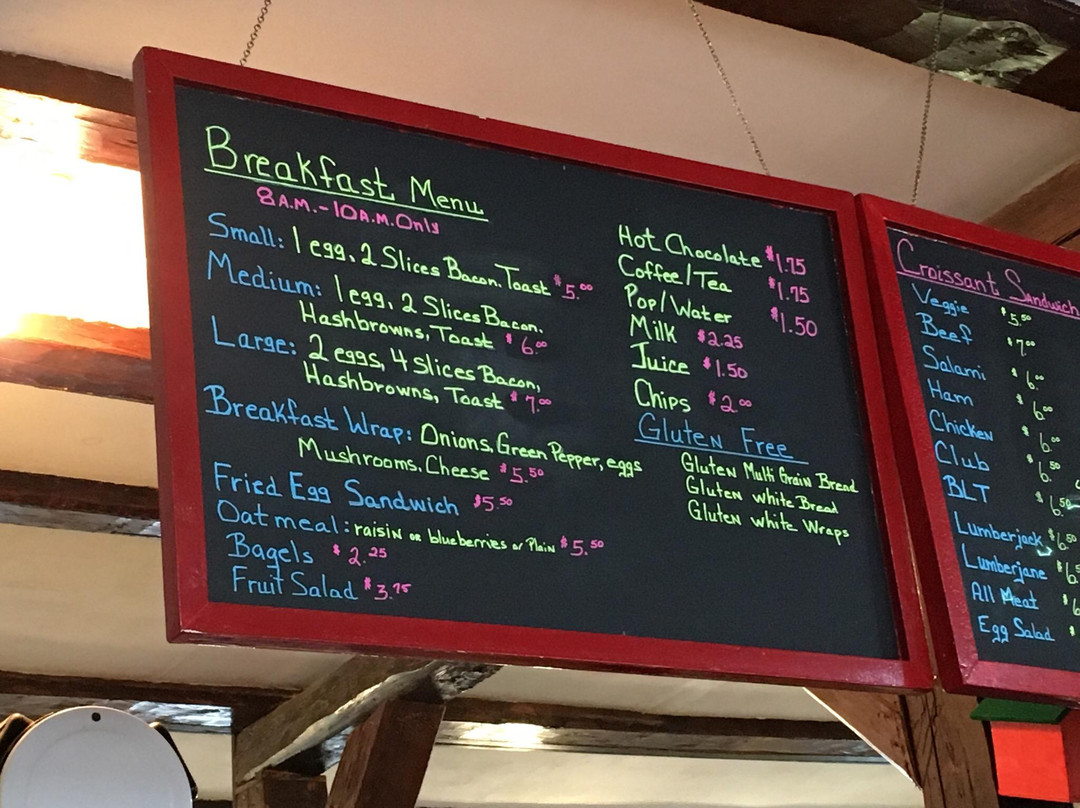 Breakfast Menu
8A.M.-10A.M.Only
Small: 1 egg, 2 Slices Bacon, Toast $5.00
Medium: 1 egg, 2 Slices Bacon.
Hashbrowns, Toast $6.00
Large: 2 eggs, 4 Slices Bacon,
Hashbrowns, Toast $7.00
Breakfast Wrap: Onions, Green Pepper, eggs
Mushrooms, Cheese $5.50
Fried Egg Sandwich $5.50
Oatmeal: raisin or blueberries or Plain $5.50
Bagels $2.25
Fruit Salad $3.75
Hot Chocolate $1.75
Coffee/Tea $1.75
Pop/Water $1.50
Milk $2.25
Juice $1.50
Chips $2.00
Gluten Free
Gluten Multi Grain Bread
Gluten white Bread
Gluten white Wraps
Croissant Sandwich
Veggie $5.50
Beef $7.00
Salami $6.00
Ham $6.00
Chicken $6.00
Club $6.50
BLT $6.50
Lumberjack $6.50
Lumberjane $6.5
All Meat $6
Egg Salad $